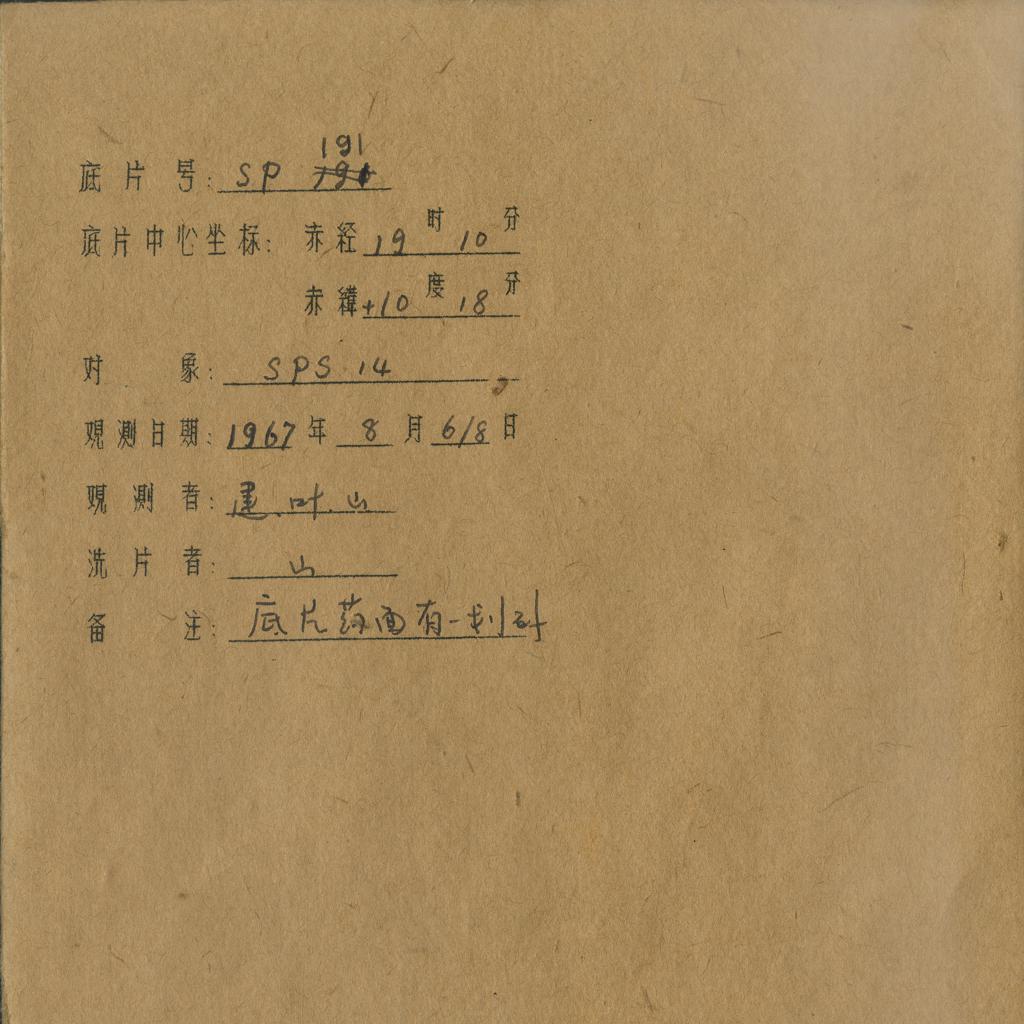 底片号: SP 191
底片中心坐标: 赤经 19时 10分
赤緯 +10度 18分
对象: SPS 14
观测日期: 1967年 8月 6/8日
观测者: 建.叶.山
洗片者: 山
备注: 底片药面有一划